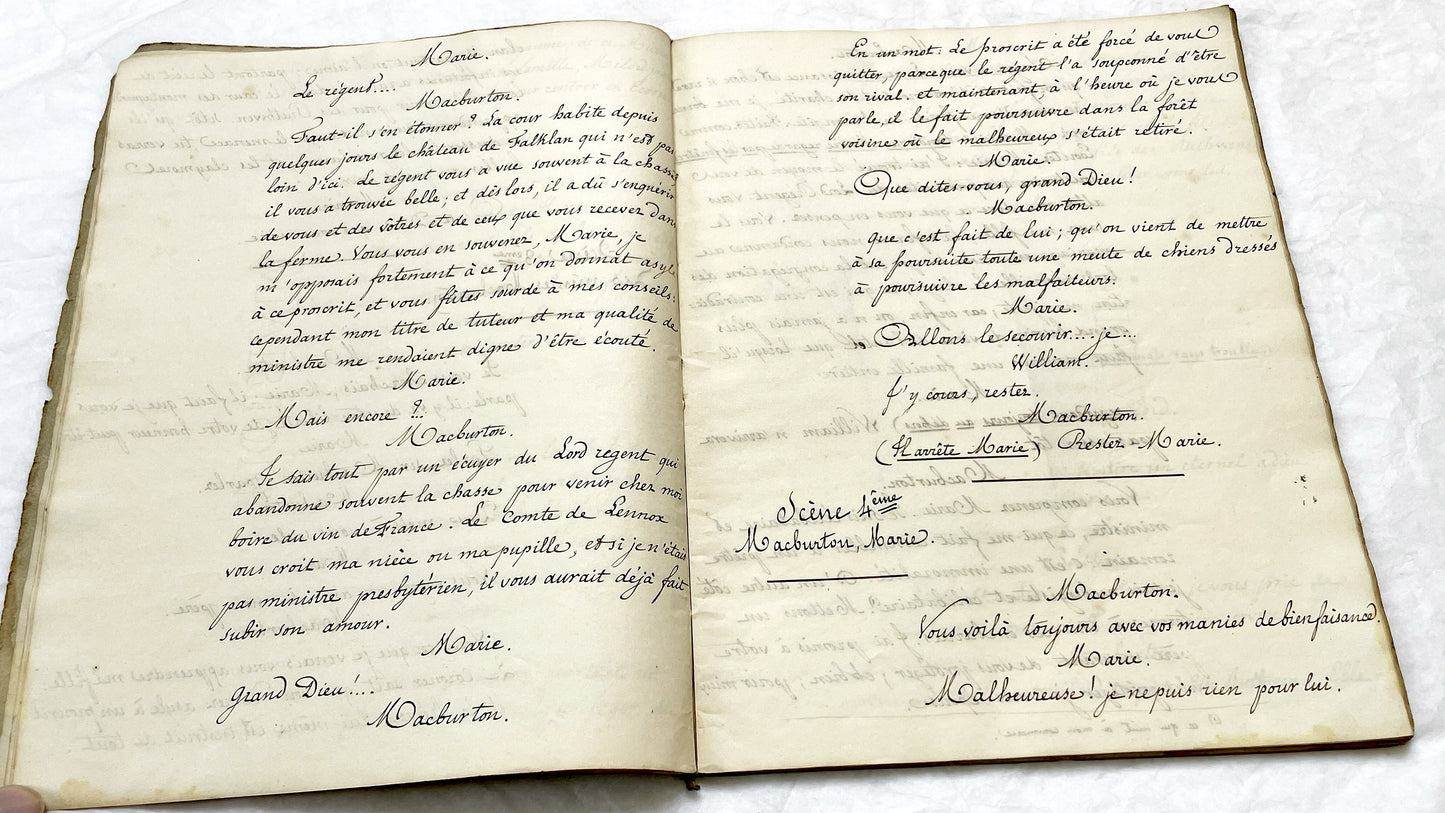 Marie.
Le régent....
Macburton.
Faut-il s'en étonner? La cour habite depuis
quelques jours le château de Falklan qui n'est pas
loin d'ici. Le régent vous a vue souvent à la chasse
il vous a trouvée belle; et dès lors, il a dû s'enquérir
de vous et des vôtres et de ceux que vous recevez dans
la ferme. Vous vous en souvenez, Marie, je
m'opposais fortement à ce qu'on donnât asyle
à ce proscrit, et vous fûtes sourde à mes conseils:
cependant mon titre de tuteur et ma qualité de
ministre me rendaient digne d'être écouté.
Marie.
Mais encore?
Macburton.
Je sais tout par un écuyer du Lord regent qui
abandonne souvent la chasse pour venir chez moi
boire du vin de France. Le comte de Lennox
vous croit ma nièce ou ma pupille, et si je n'étais
pas ministre presbytérien, il vous aurait déjà fait
subir son amour.
Marie.
Grand Dieu!...
Macburton.
En un mot. Le proscrit a été forcé de vous
quitter, parceque le régent l'a soupconné d'être
son rival. et maintenant, à l'heure où je vous
parle, il le fait poursuivre dans la forêt
voisine où le malheureux s'était retiré.
Marie.
Que dites-vous, grand Dieu!
Macburton.
Que c'est fait de lui; qu'on vient de mettre
à sa poursuite toute une meute de chiens dressés
à poursuivre les malfaiteurs.
Marie.
Allons le secourir.... je...
William.
J'y cours, restez.
Macburton.
(Il arrête Marie) Restez Marie.
Scène 4ème
Macburton, Marie.
Macburton.
Vous voilà toujours avec vos manies de bienfaisance.
Marie.
Malheureuse! je ne puis rien pour lui.